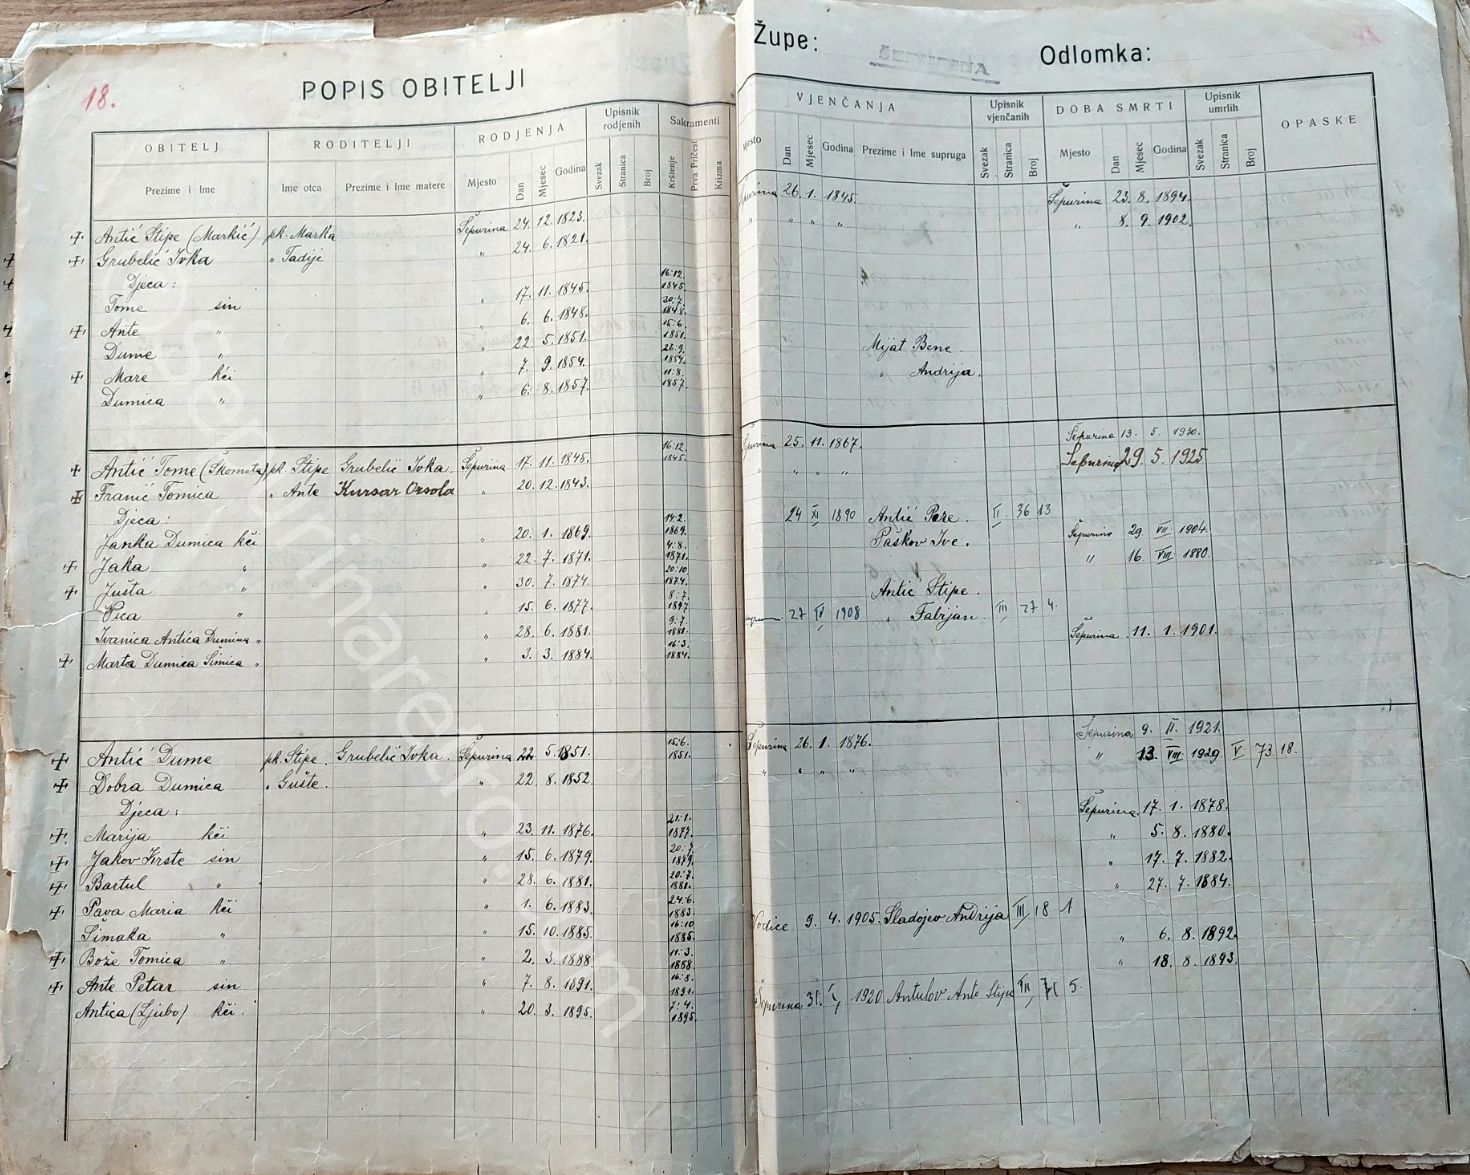 18.
POPIS OBITELJI
Župe: ŠEPURINA Odlomka:
OBITELJ RODITELJI RODJENJA Upisnik rodjenih Sakramenti
Prezime i Ime Ime otca Prezime i Ime matere Mjesto Dan Mjesec Godina Svezak Stranica Broj Krštenje Prva Pričest Krizma
VJENČANJA Upisnik vjenčanih DOBA SMRTI Upisnik umrlih OPASKE
Mjesto Dan Mjesec Godina Prezime i Ime supruga Svezak Stranica Broj Mjesto Dan Mjesec Godina Svezak Stranica Broj
Antić Stipe (Markić) pk. Marka Šepurina 24. 12. 1823. Šepurina 26. 1. 1845. Šepurina 23. 8. 1894.
Grubelić Ivka " Tadije " 24. 6. 1821. " " " " " 8. 9. 1902.
Djeca:
Tome sin " 17. 11. 1845. 16.12. 1845.
Ante " " 6. 6. 1848. 20.7. 1848.
Dume " " 22 5. 1851. 15.6. 1851.
Mare kći " 7. 9. 1854. 22.9. 1854. Mijat Bene.
Dumica " " 6. 8. 1857. 11.8. 1857. " Andrija.
Antić Tome (Škometa) pk. Stipe Grubelić Ivka Šepurina 17. 11. 1845. 16.12. 1845. Šepurina 25. 11. 1867. Šepurina 13. 5. 1930.
Franić Tomica " Ante Kursar Orsola " 20. 12. 1843. " " " " Šepurina 29. 5. 1925
Djeca:
Janka Dumica kći " 20. 1. 1869. 14.2. 1869. 24 XI 1890 Antić Pere. II 36 13
Jaka " " 22. 7. 1871. 4.8. 1871. Paškov Ive. Šepurina 29. VII. 1904.
Jušta " " 30. 7. 1874. 20.10. 1874. " 16. VIII. 1880.
Pica " " 15. 6. 1877. 8.7. 1877. Antić Stipe.
Ivanica Antića Dumina " " 28. 6. 1881. 9.7. 1881. 27 IV 1908 " Fabijan. III 27 4.
Marta Dumica Šimica " " 3. 3. 1884. 16.3. 1884. Šepurina 11. 1. 1901.
Antić Dume pk. Stipe. Grubelić Ivka. Šepurina 22. 5. 1851. 15.6. 1851. Šepurina 26. 1. 1876. Šepurina 9. II. 1921.
Dobra Dumica " Gušte. " 22. 8. 1852. " " " " " 13. VIII 1929 V 73 18.
Djeca:
Marija kći " 23. 11. 1876. 21.1. 1877. Šepurina 17. 1. 1878.
Jakov Krste sin " 15. 6. 1879. 20.7. 1879. " 5. 8. 1880.
Bartul " " 28. 6. 1881. 20.7. 1881. " 17. 7. 1882.
Pava Maria kći " 1. 6. 1883. 24.6. 1883. " 27. 7. 1884.
Šimaka " " 15. 10. 1885. 16.10. 1885. Vodice 9. 4. 1905. Sladojev Andrija III 18 1
Bože Tomica " " 2. 3. 1888 11.3. 1888. " 6. 8. 1892.
Ante Petar sin " 7. 8. 1891. 16.8. 1891. " 18. 8. 1893.
Antica (Ljubo) kći. " 20. 3. 1895. 7.4. 1895. Šepurina 31. 1920 Antulov Ante Stipe 5.